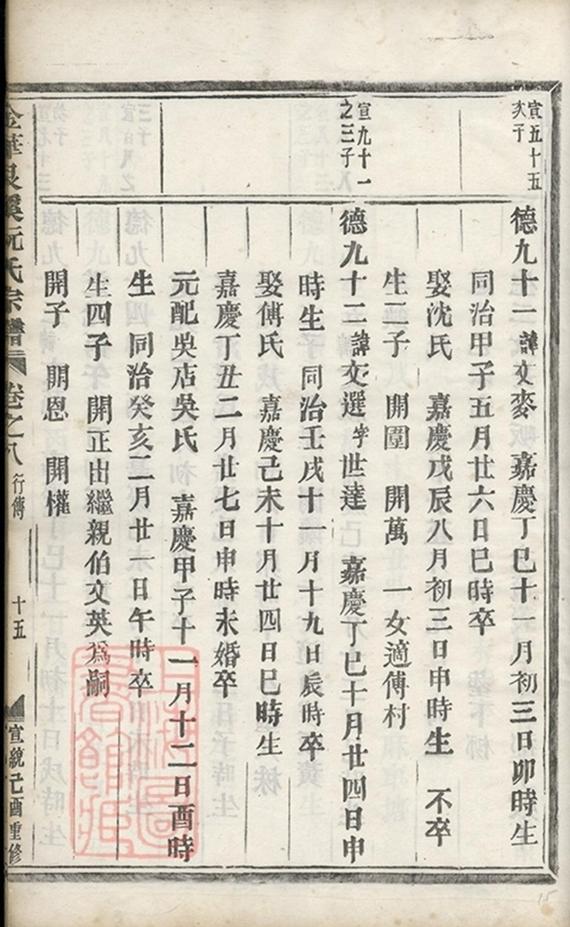 宣五十五
次子
德九十一諱文麥 嘉慶丁巳十一月初三日卯時生
同治甲子五月廿六日巳時卒
娶沈氏 嘉慶戊辰八月初三日申時生 不卒
生二子 開圍 開萬 一女適傅村
宣九十一
之三子
德九十二諱文選字世達 嘉慶丁巳十月廿四日申
時生 同治壬戌十一月十九日辰時卒
娶傅氏 嘉慶己未十月廿四日巳時生
嘉慶丁丑二月廿七日申時未婚卒
元配吳店吳氏 嘉慶甲子十一月十二日酉時
生 同治癸亥二月廿一日午時卒
生四子 開正出繼親伯文英爲嗣
開子 開恩 開權
金華良溪阮氏宗譜 卷之八 行傳 十五 宣統己酉重修
15